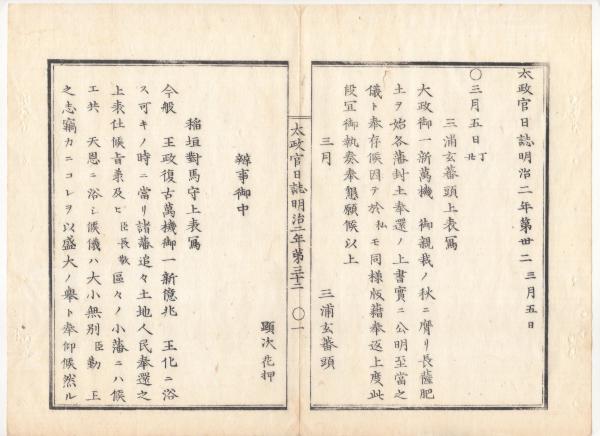 太政官日誌明治二年第卅二 三月五日
〇三月五日丁丑
三浦玄蕃頭上表寫
大政御一新萬機 御親裁ノ秋ニ膺リ長薩肥
土ヲ始各藩封土奉還ノ上書實ニ公明至當之
儀ト奉存候因テ於私モ同樣版籍奉返上度此
段宜御執奏奉懇願候以上
三月 三浦玄蕃頭
太政官日誌明治二年第三十二 〇一
顯次花押
辨事御中
稲垣對馬守上表寫
今般 王政復古萬機御一新億兆 王化ニ浴
ス可キノ時ニ當リ諸藩追々土地人民奉還之
上表仕候旨承及ヒ臣長敬區々ノ小藩ニハ候
エ共 天恩ニ浴シ候儀ハ大小無別臣勤 王
之志竊カニコレヲ以盛大ノ擧ト奉仰候然ル